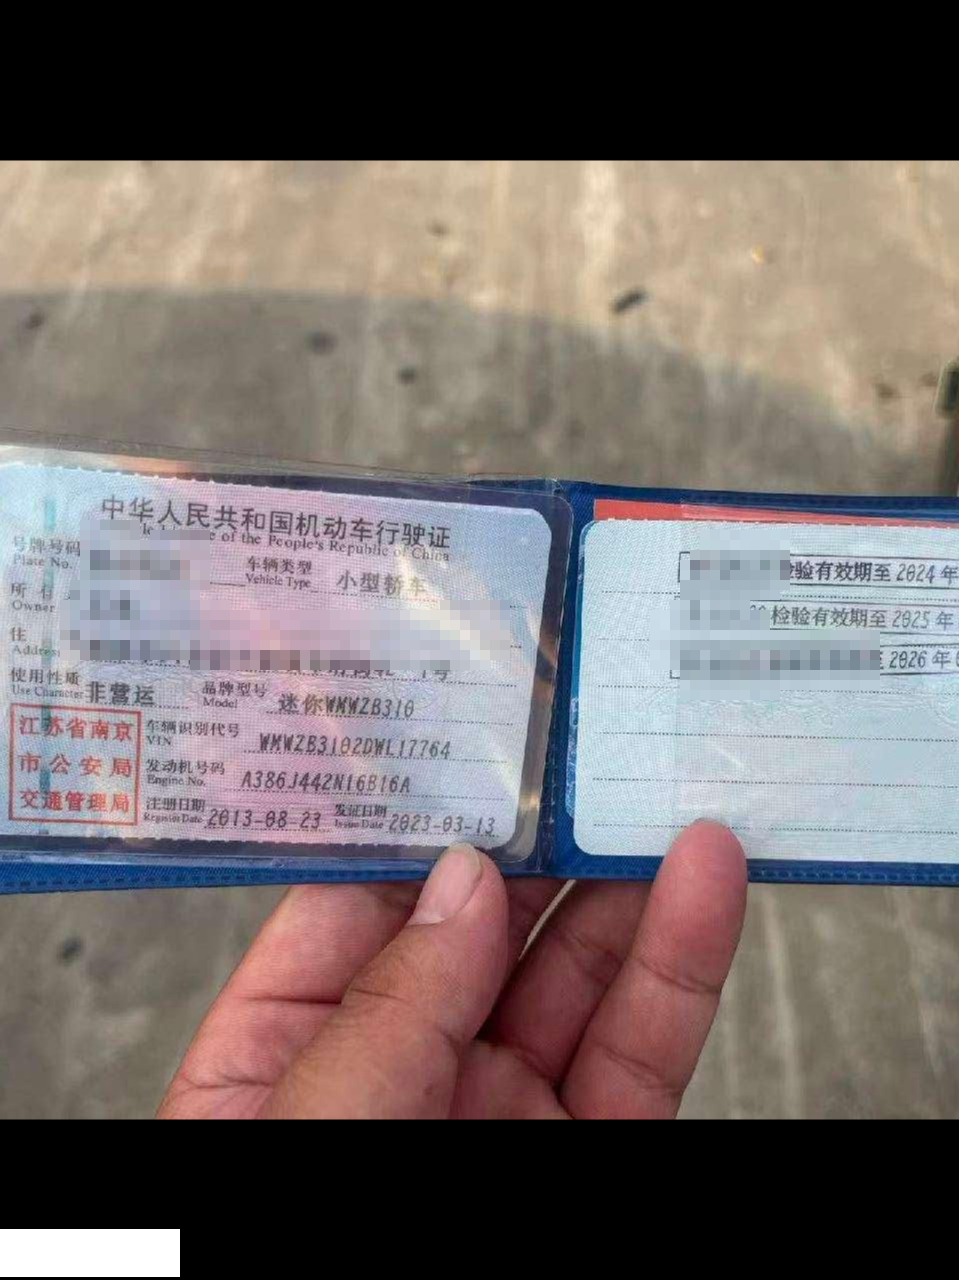 中华人民共和国机动车行驶证
of the People's Republic of China
号牌号码
Plate No.
车辆类型
Vehicle Type
小型轿车
所
Owner
住
Address
使用性质
Use Character
非营运
品牌型号
Model
迷你WMWZB310
江苏省南京
市公安局
交通管理局
车辆识别代号
VIN
WMWZB3102DWL17764
发动机号码
Engine No.
A386J442N16B16A
注册日期
Register Date
2013-08-23
发证日期
Issue Date
2023-03-13
检验有效期至2024年
检验有效期至2025年
至2026年